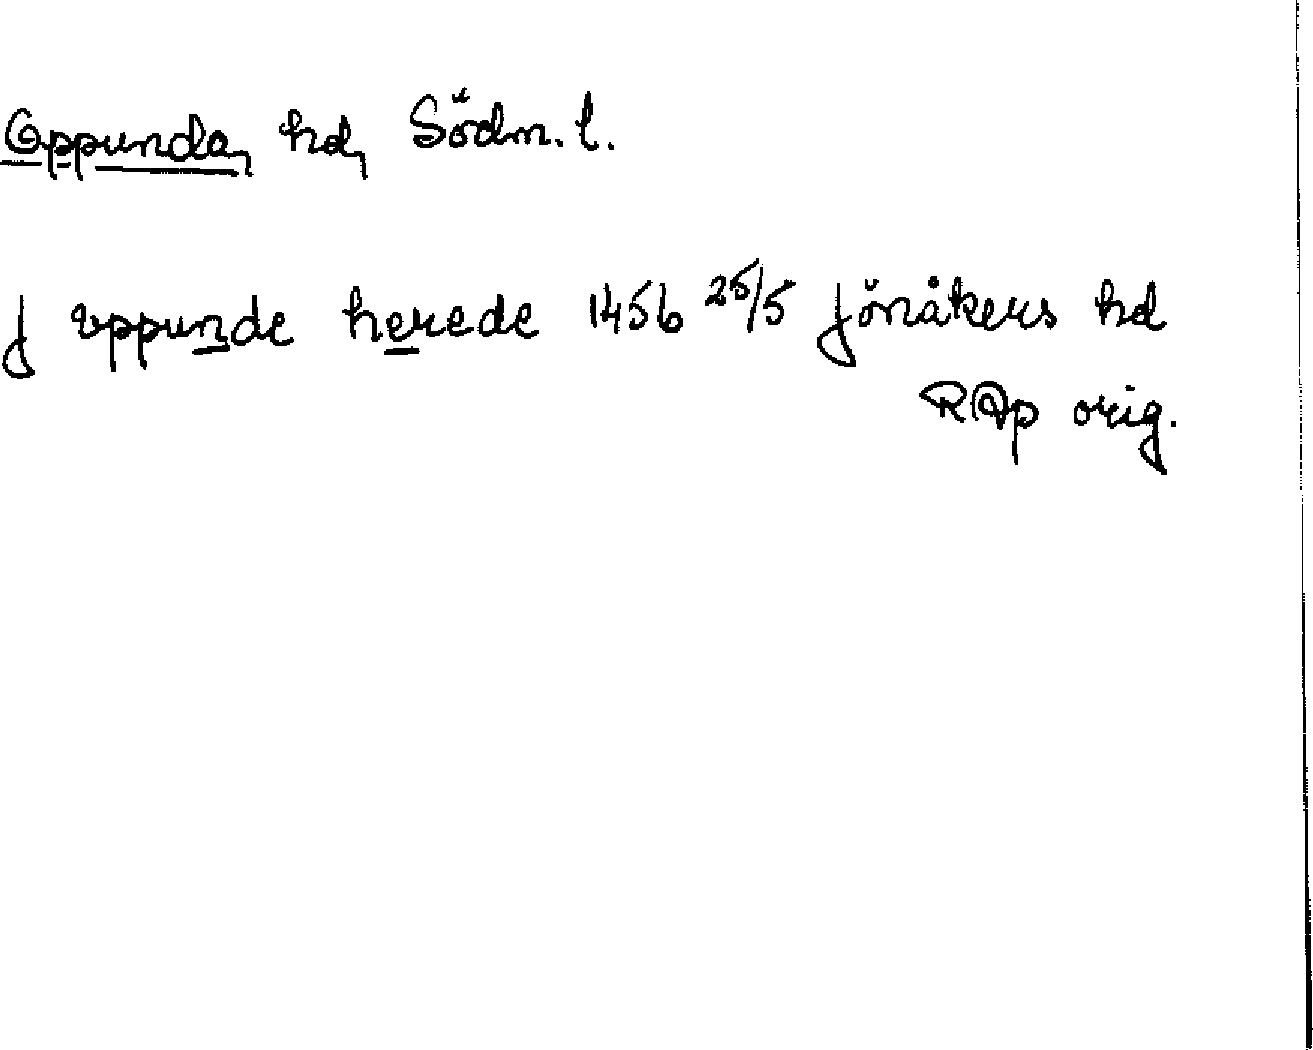 Oppunda, hd, Södm. l.
J vppunde herede 1456 25/5 Jönåkers hd
RAp orig.